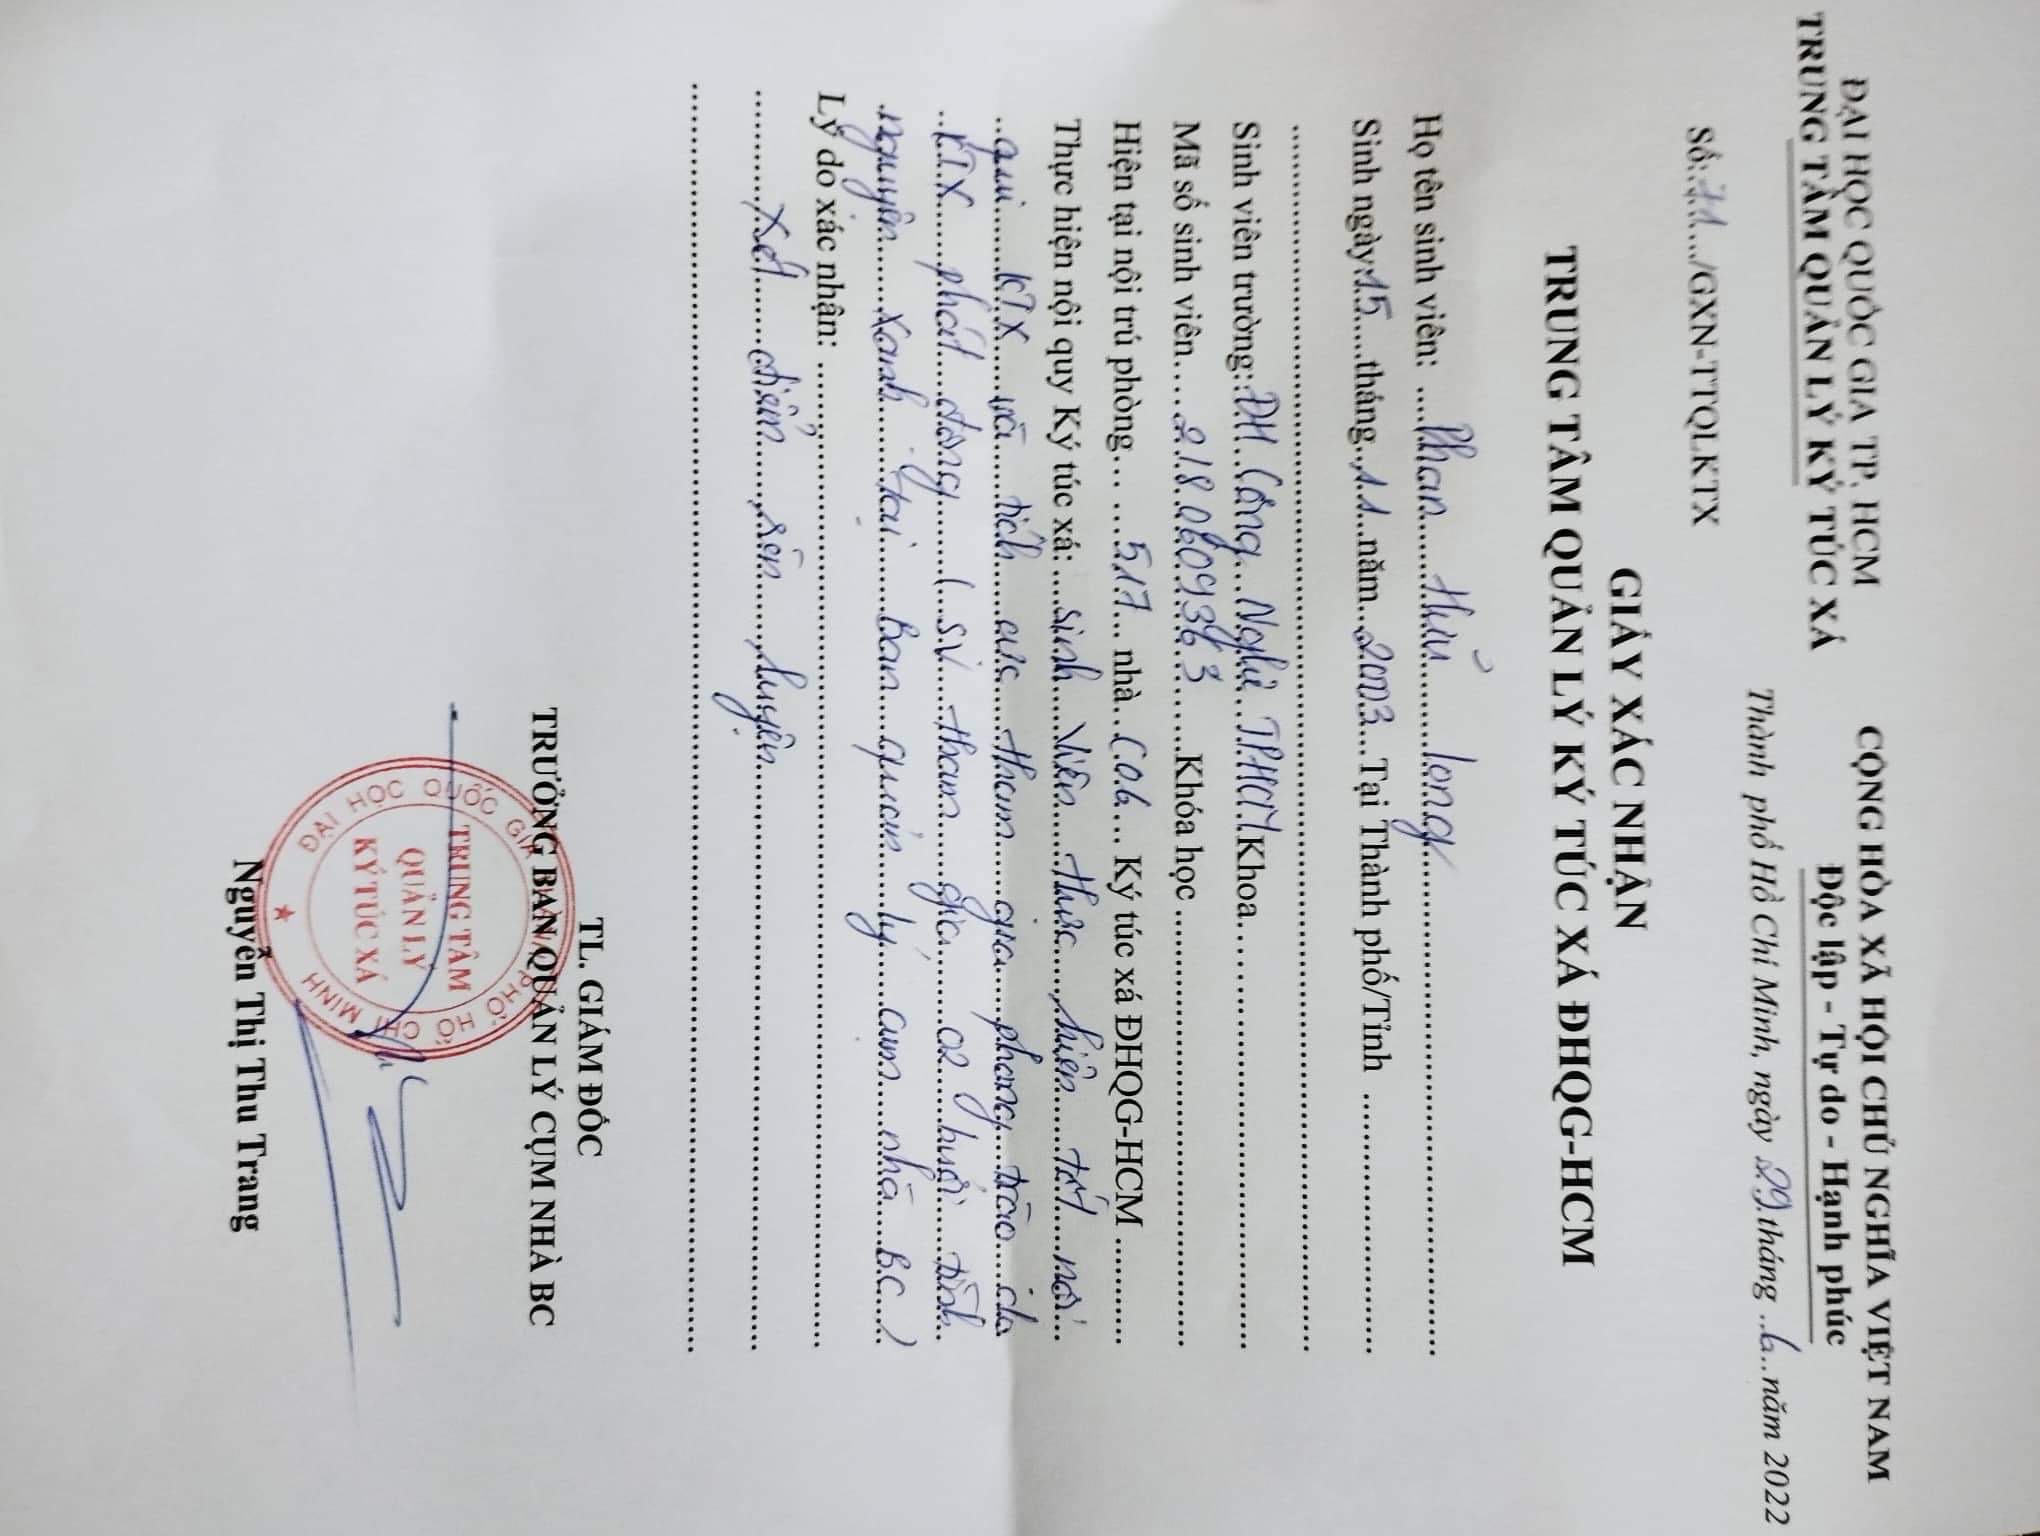 ĐẠI HỌC QUỐC GIA TP. HCM
TRUNG TÂM QUẢN LÝ KÝ TÚC XÁ
CỘNG HÒA XÃ HỘI CHỦ NGHĨA VIỆT NAM
Độc lập - Tự do - Hạnh phúc
Số: 71 /GXN-TTQLKTX
Thành phố Hồ Chí Minh, ngày 29 tháng 6 năm 2022
GIẤY XÁC NHẬN
TRUNG TÂM QUẢN LÝ KÝ TÚC XÁ ĐHQG-HCM
Họ tên sinh viên: Phan Hữu Long
Sinh ngày 15 tháng 11 năm 2003 Tại Thành phố/Tỉnh
Sinh viên trường: ĐH Công Nghệ TPHCM Khoa
Mã số sinh viên 2180609363 Khóa học
Hiện tại nội trú phòng 517 nhà C06 Ký túc xá ĐHQG-HCM
Thực hiện nội quy Ký túc xá: Sinh viên thực hiện tốt nội
qui KTX và tích cực tham gia phong trào do
KTX phát động ( SV tham gia 02 buổi tình
nguyện xanh tại Ban quản lý cụm nhà BC )
Lý do xác nhận:
Xét điểm rèn luyện
TL. GIÁM ĐỐC
TRƯỞNG BAN QUẢN LÝ CỤM NHÀ BC
ĐẠI HỌC QUỐC GIA THÀNH PHỐ HỒ CHÍ MINH
TRUNG TÂM
QUẢN LÝ
KÝ TÚC XÁ
Nguyễn Thị Thu Trang